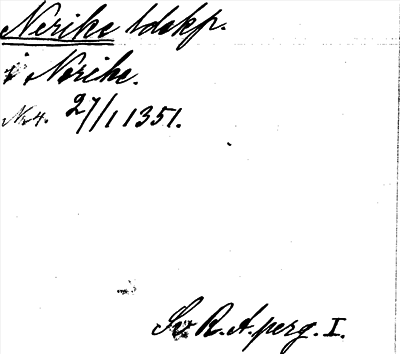 Nerike ldskp.
i Nerike.
Nr 4. 27/1 1351.
Sv. R. A. perg. I.